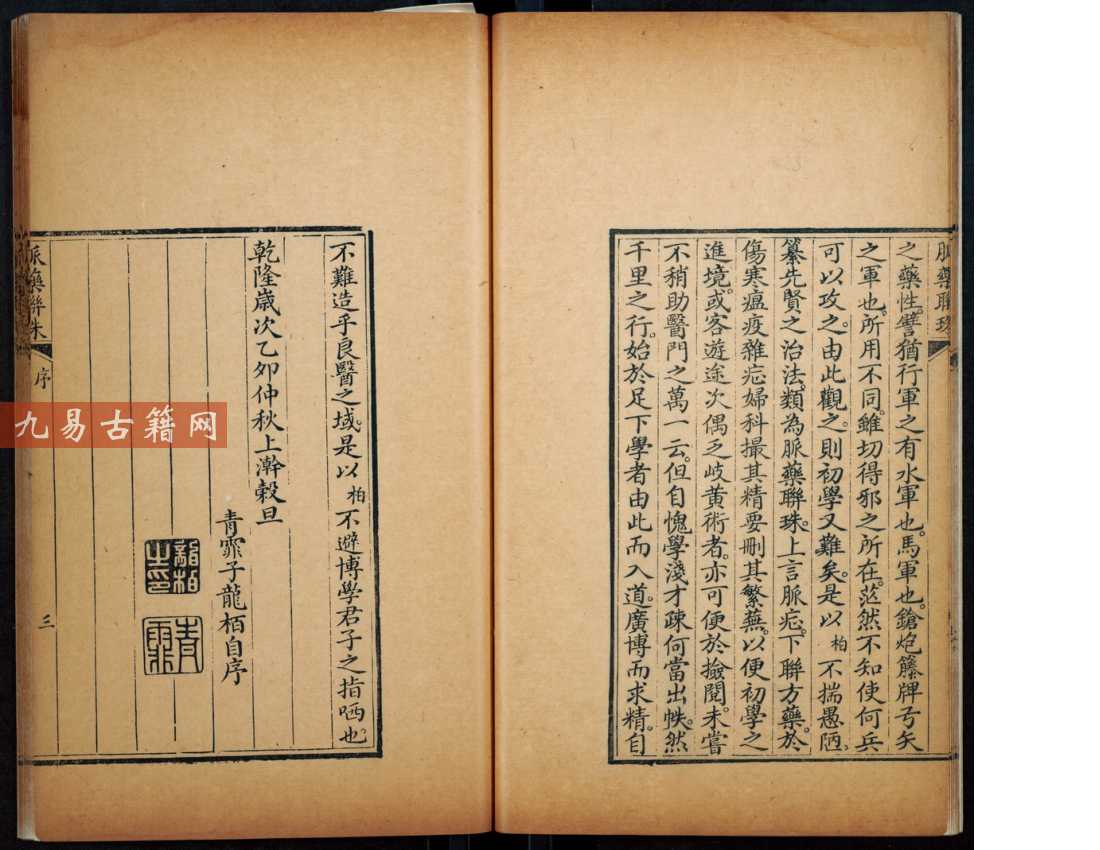 脈藥聯珠
之藥性譬猶行軍之有水軍也馬軍也鎗炮籐牌弓矢
之軍也所用不同雖切得邪之所在茫然不知使何兵
可以攻之由此觀之則初學又難矣是以柏不揣愚陋
纂先賢之治法類為脈藥聯珠上言脈症下聯方藥於
傷寒瘟疫雜症婦科撮其精要刪其繁蕪以便初學之
進境或客遊途次偶乏岐黃術者亦可便於撿閱未嘗
不稍助醫門之萬一云但自愧學淺才疎何當出帙然
千里之行始於足下學者由此而入道廣博而求精自
不難造乎良醫之域是以柏不避博學君子之指哂也
乾隆歲次乙卯仲秋上澣穀旦
青霏子龍栢自序
龍柏之印
青霏
脈藥聯珠
序
三
九易古籍网